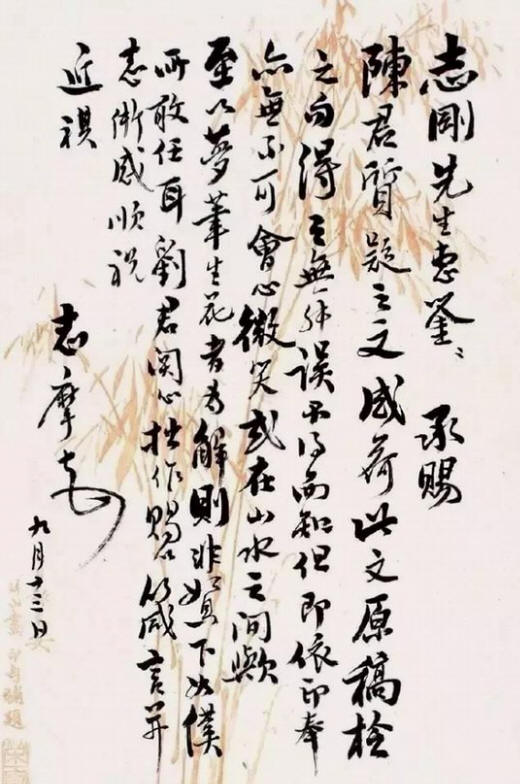 志剛先生惠鉴 承賜
陳君質疑之文感荷此文原稿检
之句得之無能誤不得而知但即依印奉
亦無不可會心微笑或在山水之間歟
至以夢筆生花者為解則非媪下如僕
所敢任耳劉君関心拙作賜以箴言并
志慚感順祝
近祺
志摩
九月十三日